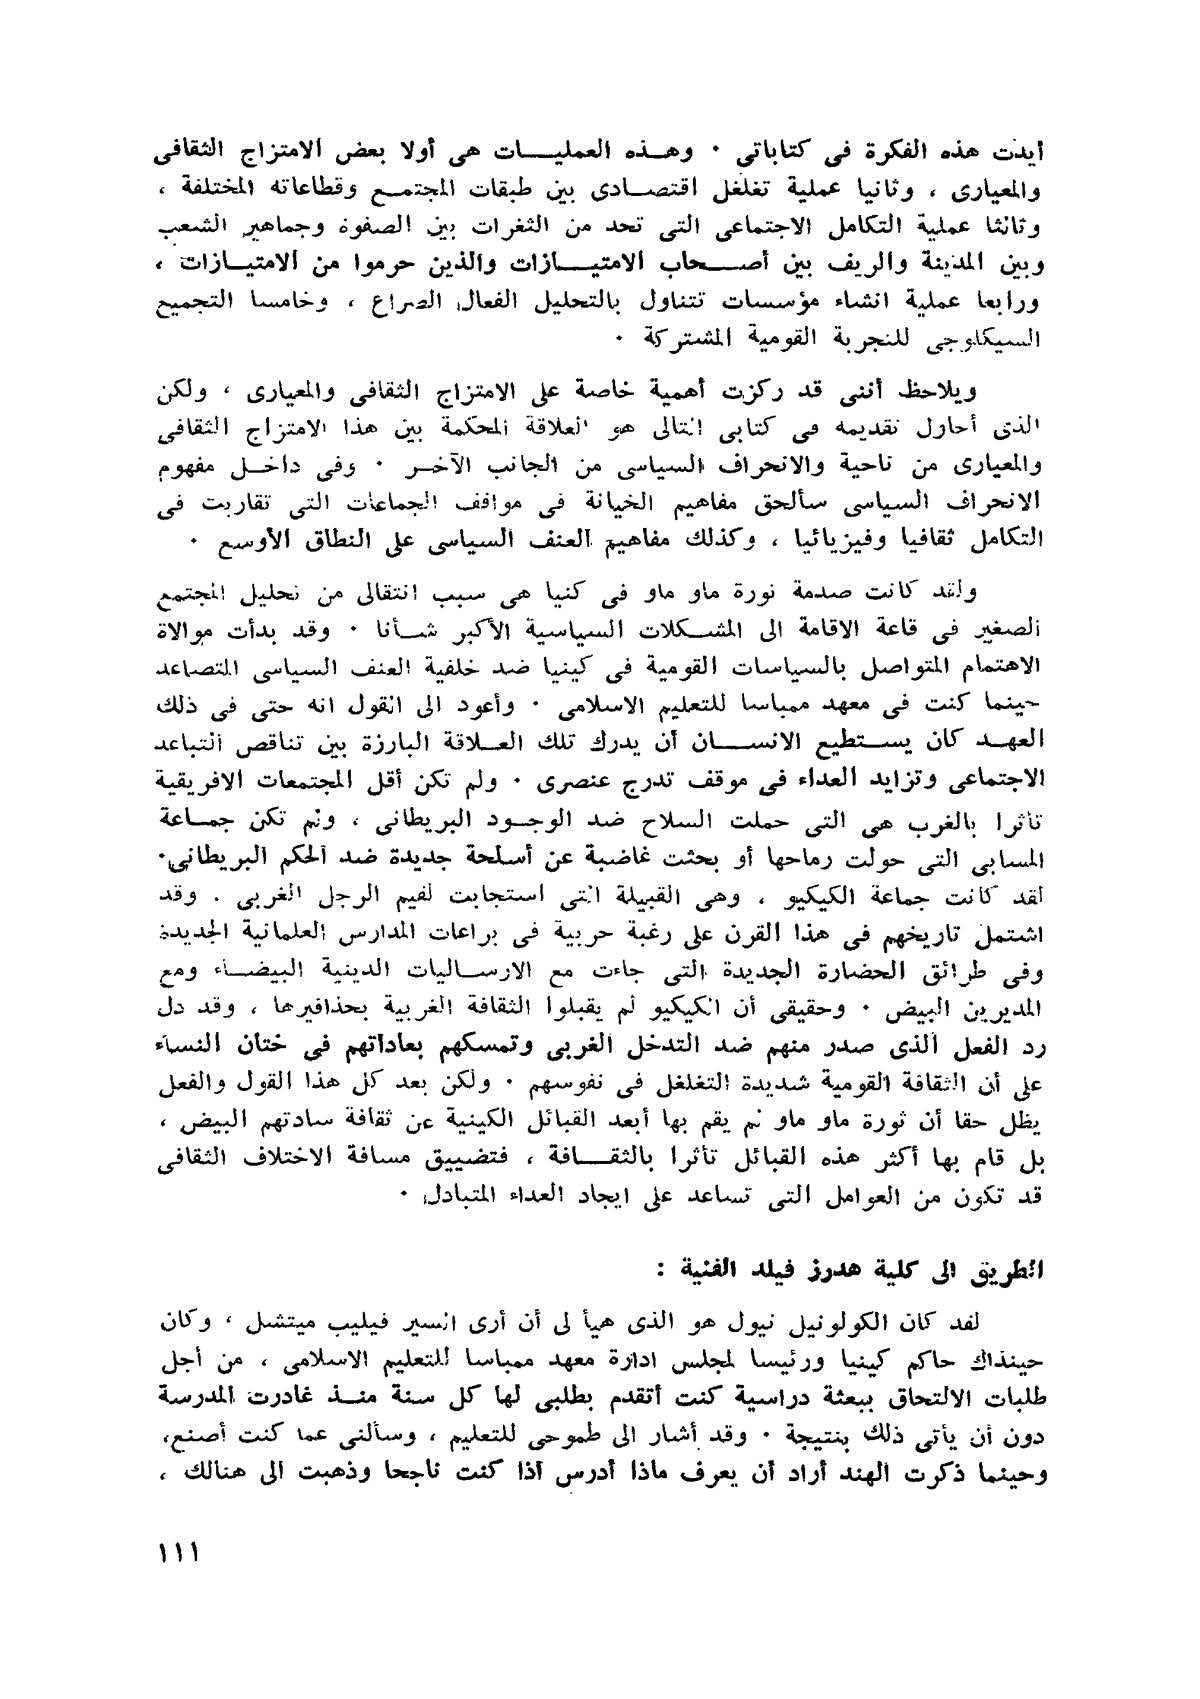 أيدت هذه الفكرة فى كتاباتى ٠ وهذه العمليات هى أولا بعض الامتزاج الثقافى
والمعيارى ، وثانيا عملية تغلغل اقتصادى بين طبقات المجتمع وقطاعاته المختلفة ،
وثالثا عملية التكامل الاجتماعى التى تحد من الثغرات بين الصفوة وجماهير الشعب
وبين المدينة والريف بين أصحاب الامتيازات والذين حرموا من الامتيازات ،
ورابعا عملية انشاء مؤسسات تتناول بالتحليل الفعال الصراع ، وخامسا التجميع
السيكلوجى للتجربة القومية المشتركة ٠
ويلاحظ أننى قد ركزت أهمية خاصة على الامتزاج الثقافى والمعيارى ، ولكن
الذى أحاول تقديمه فى كتابى التالى هو العلاقة المحكمة بين هذا الامتزاج الثقافى
والمعيارى من ناحية والانحراف السياسى من الجانب الآخر ٠ وفى داخل مفهوم
الانحراف السياسى سألحق مفاهيم الخيانة فى مواقف الجماعات التى تقاربت فى
التكامل ثقافيا وفيزيائيا ، وكذلك مفاهيم العنف السياسى على النطاق الأوسع ٠
ولقد كانت صدمة ثورة ماو ماو فى كنيا هى سبب انتقالى من تحليل المجتمع
الصغير فى قاعة الاقامة الى المشكلات السياسية الأكبر شأنا ٠ وقد بدأت موالاة
الاهتمام المتواصل بالسياسات القومية فى كينيا ضد خلفية العنف السياسى المتصاعد
حينما كنت فى معهد ممباسا للتعليم الاسلامى ٠ وأعود الى القول انه حتى فى ذلك
العهد كان يستطيع الانسان أن يدرك تلك العلاقة البارزة بين تناقص التباعد
الاجتماعى وتزايد العداء فى موقف تدرج عنصرى ٠ ولم تكن أقل المجتمعات الافريقية
تأثرا بالغرب هى التى حملت السلاح ضد الوجود البريطانى ، ولم تكن جماعة
المسابى التى حولت رماحها أو بحثت غاضبة عن أسلحة جديدة ضد الحكم البريطانى٠
لقد كانت جماعة الكيكيو ، وهى القبيلة التى استجابت لقيم الرجل الغربى . وقد
اشتمل تاريخهم فى هذا القرن على رغبة حربية فى براعات المدارس العلمانية الجديدة
وفى طرائق الحضارة الجديدة التى جاءت مع الارساليات الدينية البيضاء ومع
المديرين البيض ٠ وحقيقى أن الكيكيو لم يقبلوا الثقافة الغربية بحذافيرها ، وقد دل
رد الفعل الذى صدر منهم ضد التدخل الغربى وتمسكهم بعاداتهم فى ختان النساء
على أن الثقافة القومية شديدة التغلغل فى نفوسهم ٠ ولكن بعد كل هذا القول والفعل
يظل حقا أن ثورة ماو ماو لم يقم بها أبعد القبائل الكينية عن ثقافة سادتهم البيض ،
بل قام بها أكثر هذه القبائل تأثرا بالثقافة ، فتضييق مسافة الاختلاف الثقافى
قد تكون من العوامل التى تساعد على ايجاد العداء المتبادل ٠
الطريق الى كلية هدرز فيلد الفنية :
لقد كان الكولونيل نيول هو الذى هيأ لى أن أرى السير فيليب ميتشل ، وكان
حينذاك حاكم كينيا ورئيسا لمجلس ادارة معهد ممباسا للتعليم الاسلامى ، من أجل
طلبات الالتحاق ببعثة دراسية كنت أتقدم بطلبى لها كل سنة منذ غادرت المدرسة
دون أن يأتى ذلك بنتيجة ٠ وقد أشار الى طموحى للتعليم ، وسألنى عما كنت أصنع،
وحينما ذكرت الهند أراد أن يعرف ماذا أدرس أذا كنت ناجحا وذهبت الى هنالك ،
١١١